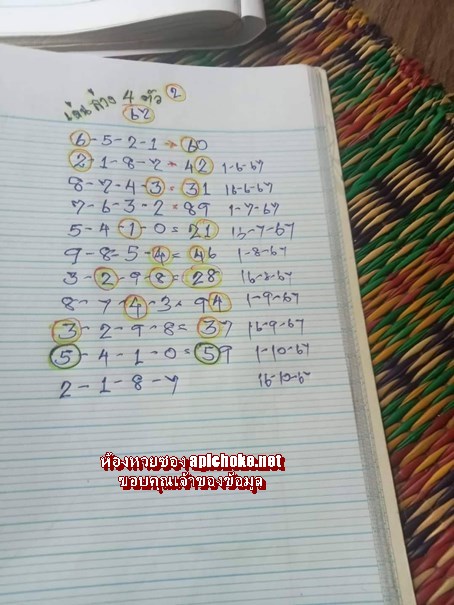 เด่นล่าง 4 ตัว 2
67
6-5-2-1 → 60
2-1-8-7 → 42 1-6-67
8-7-4-3 = 31 16-6-67
7-6-3-2 = 89 1-7-67
5-4-1-0 = 21 15-7-67
9-8-5-4 = 46 1-8-67
3-2-9-8 = 28 16-8-67
8-7-4-3 = 94 1-9-67
3-2-9-8 = 37 16-9-67
5-4-1-0 = 59 1-10-67
2-1-8-7 16-10-67
ห้องหวยซอง apichoke.net
ขอบคุณเจ้าของข้อมุล